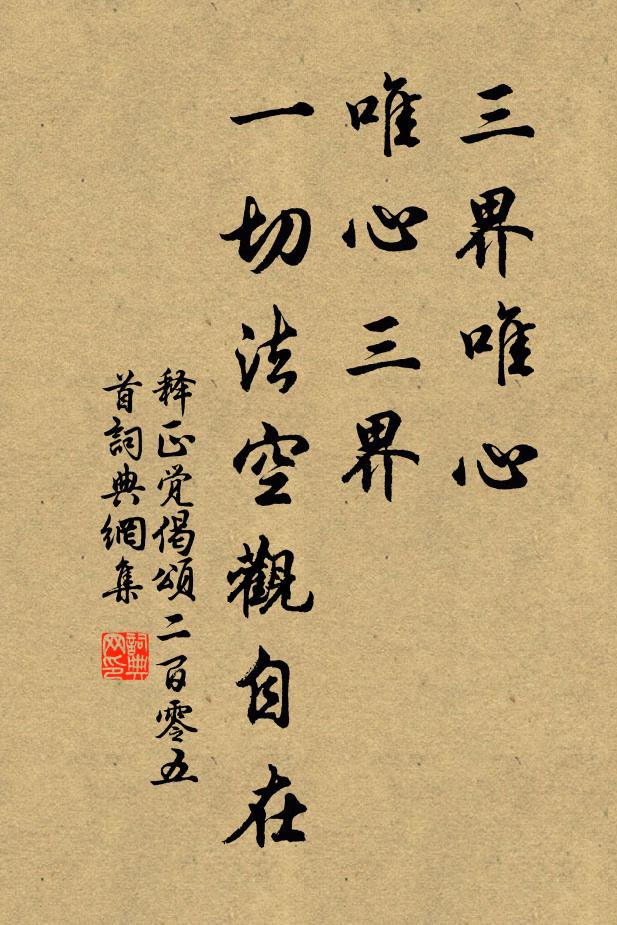 三界唯心
唯心三界
一切法空觀自在
释正觉偈頌二百零五
首詞典網集
詞典网印